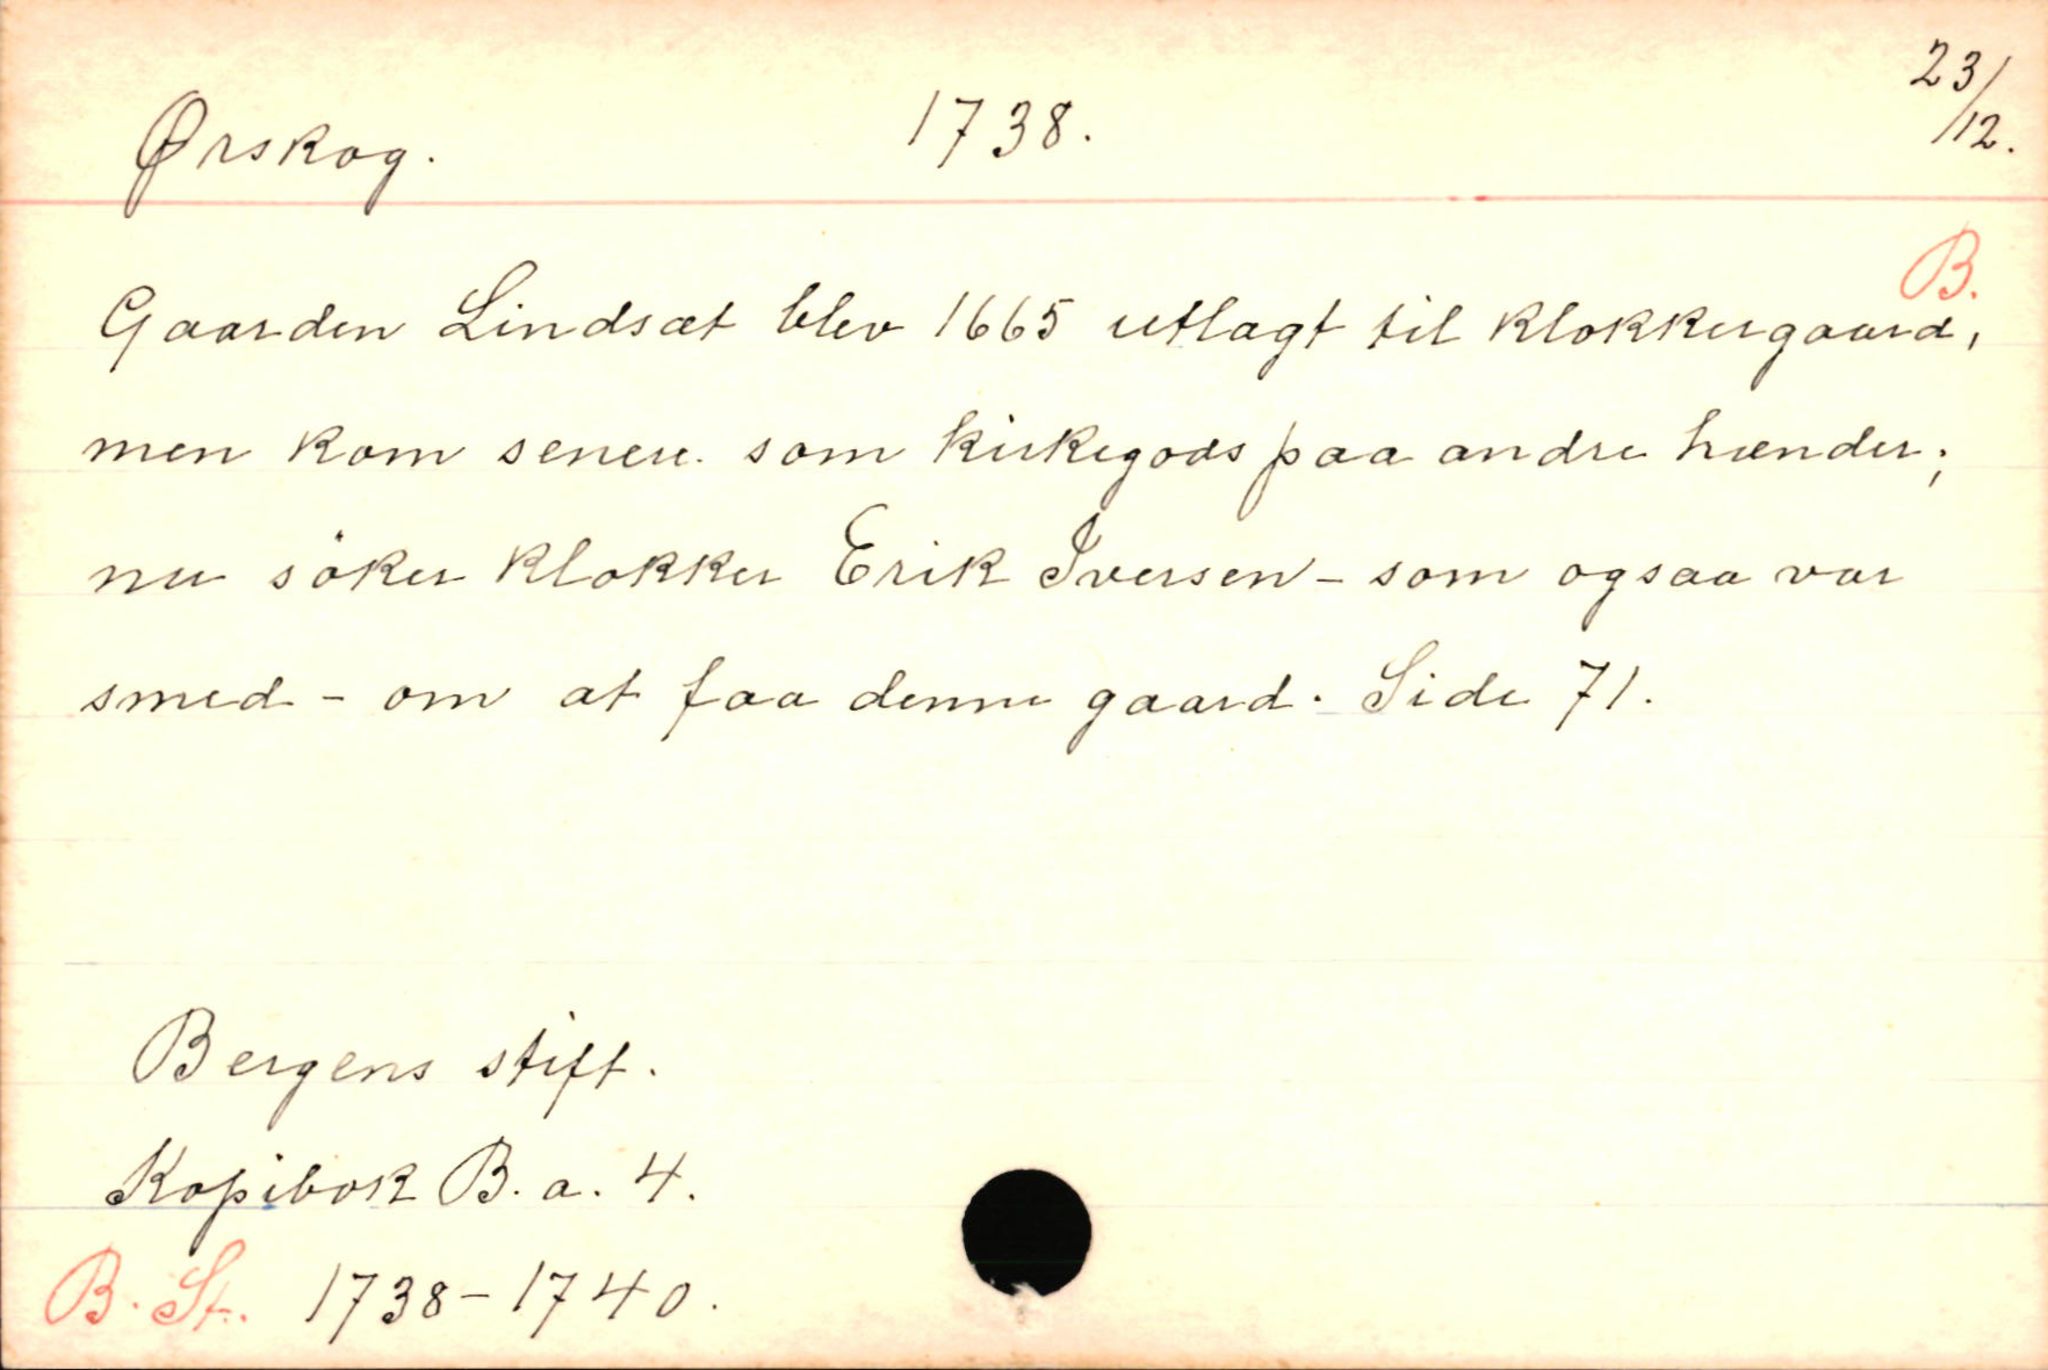 Ørskog. 1738. 23/12.
B.
Gaarden Lindsæt blev 1665 utlagt til klokkergaard,
men kom senere som kirkegods paa andre hænder;
nu søker klokker Erik Iversen - som ogsaa var
smed - om at faa denne gaard. Side 71.
Bergens stift.
Kopibok B. a. 4.
B. St. 1738-1740.